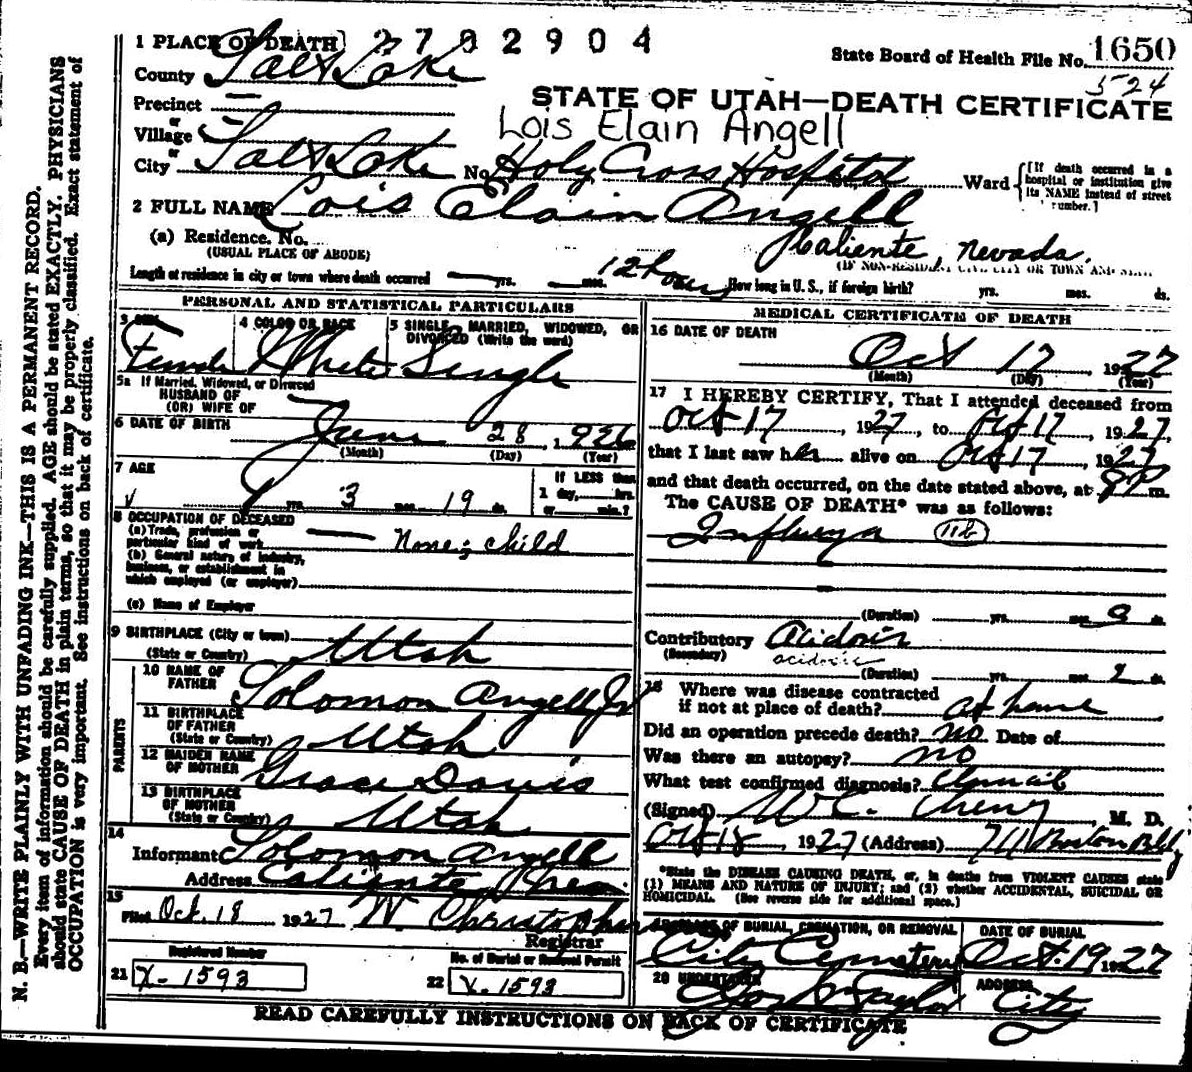 1 PLACE OF DEATH 2702904
State Board of Health File No. 1650
County Salt Lake
524
Precinct
STATE OF UTAH—DEATH CERTIFICATE
or
Village
Lois Elain Angell
or
City Salt Lake No. Holy Cross Hospital Ward
[If death occurred in a
hospital or institution give
its NAME instead of street
number.]
2 FULL NAME Lois Elain Angell
(a) Residence. No. Caliente, Nevada.
(USUAL PLACE OF ABODE)
Length of residence in city or town where death occurred yrs. mos. 12 hours How long in U. S., if foreign birth? yrs. mos. ds.
PERSONAL AND STATISTICAL PARTICULARS
3 SEX Female
4 COLOR OR RACE White
5 SINGLE, MARRIED, WIDOWED, OR
DIVORCED (Write the word) Single
5a If Married, Widowed, or Divorced
HUSBAND OF
(OR) WIFE OF
6 DATE OF BIRTH June 28, 1926
(Month) (Day) (Year)
7 AGE 1 yrs. 3 mos. 19 ds.
If LESS than
1 day, hrs.
or min.?
8 OCCUPATION OF DECEASED
(a) Trade, profession or
particular kind of work None; child
(b) General nature of industry,
business, or establishment in
which employed (or employer)
(c) Name of Employer
9 BIRTHPLACE (City or town)
(State or Country) Utah
PARENTS
10 NAME OF
FATHER Solomon Angell Jr
11 BIRTHPLACE
OF FATHER
(State or Country) Utah
12 MAIDEN NAME
OF MOTHER Grace Davis
13 BIRTHPLACE
OF MOTHER
(State or Country) Utah
14
Informant Solomon Angell
Address Caliente, Nev.
15
Filed Oct. 18 1927 W. Christopher
Registrar
Registered Number
21 X-1593
No. of Burial or Removal Permit
22 X-1593
MEDICAL CERTIFICATE OF DEATH
16 DATE OF DEATH
Oct 17, 1927
(Month) (Day) (Year)
17 I HEREBY CERTIFY, That I attended deceased from
Oct 17, 1927, to Oct 17, 1927,
that I last saw her alive on Oct 17, 1927
and that death occurred, on the date stated above, at 9 P m.
The CAUSE OF DEATH* was as follows:
Influenza 11b
(Duration) yrs. mos. ds.
Contributory Acidosis
(Secondary) acidosis
(Duration) 2 ds.
18 Where was disease contracted
if not at place of death? at home
Did an operation precede death? no Date of
Was there an autopsy? no
What test confirmed diagnosis? Clinical
(Signed) W.C. Cheney, M. D.
Oct 18, 1927 (Address) 711 Boston Bldg
*State the DISEASE CAUSING DEATH, or, in deaths from VIOLENT CAUSES state
(1) MEANS AND NATURE OF INJURY; and (2) whether ACCIDENTAL, SUICIDAL OR
HOMICIDAL. (See reverse side for additional space.)
19 PLACE OF BURIAL, CREMATION, OR REMOVAL
City Cemetery
DATE OF BURIAL
Oct. 19 1927
20 UNDERTAKER
Taylor
ADDRESS
City
READ CAREFULLY INSTRUCTIONS ON BACK OF CERTIFICATE
N. B.—WRITE PLAINLY WITH UNFADING INK—THIS IS A PERMANENT RECORD.
Every item of information should be carefully supplied. AGE should be stated EXACTLY. PHYSICIANS
should state CAUSE OF DEATH in plain terms, so that it may be properly classified. Exact statement of
OCCUPATION is very important. See instructions on back of certificate.